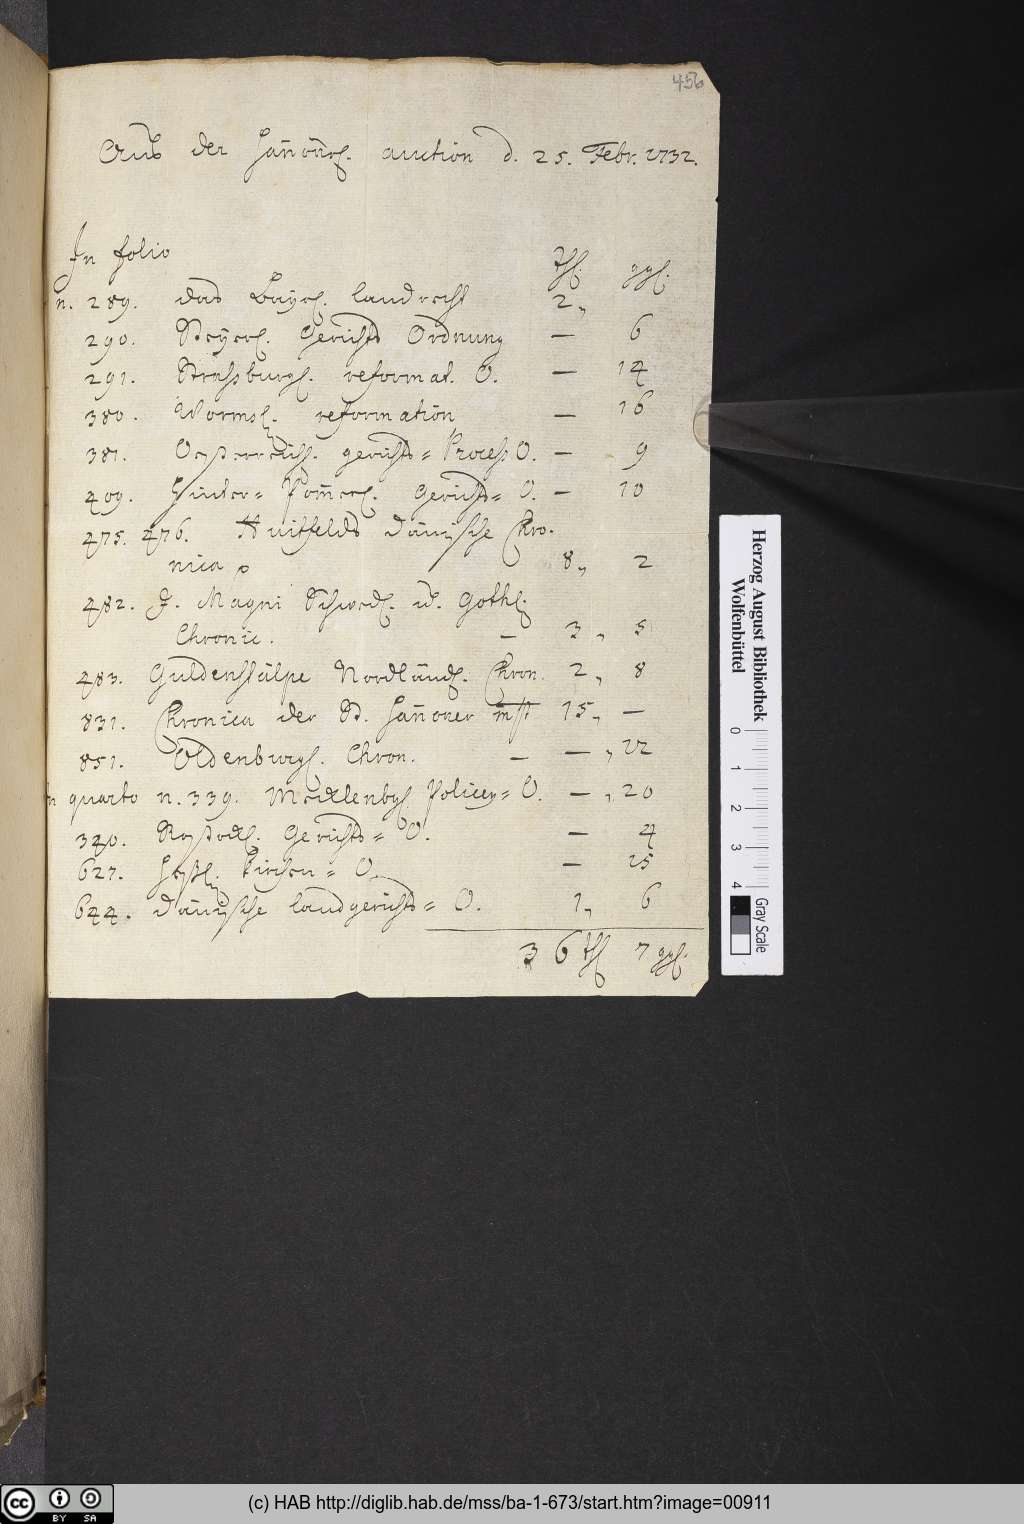 456
Aus der Hannövr. auction d. 25. Febr. 1732.
In folio
thl. ggl.
n. 289. das Bayrs. landrecht 2,,
290. Steyrs. Gerichts Ordnung — 6
291. Strassburgs. reformat. O. — 14
380. Worms. reformation — 16
381. Oesterreichs. gerichts= Process O. — 9
409. Hinter= Pom̄ers. Gerichts= O. — 10
475. 476. Huitfelds dänische Chro-
nica 8,, 2
482. J. Magni Schwed. u. Goth.
Chronic. — 3,, 5
483. Guldenstälpe Nordländs. Chron. 2,, 8
831. Chronica der St. Hannover mst 15,, —
851. Oldenburgs. Chron. — —,, 22
in quarto n. 339. Mecklenbgs. Policey= O. —,, 20
340. Rostocks. Gerichts= O. — 4
627. Hess. Kirchen= O. — 15
644. dänische landgerichts= O. 1,, 6
36 thl. 7 ggl.
Herzog August Bibliothek
Wolfenbüttel
0 1 2 3 4
Gray Scale
cc BY SA
(c) HAB http://diglib.hab.de/mss/ba-1-673/start.htm?image=00911